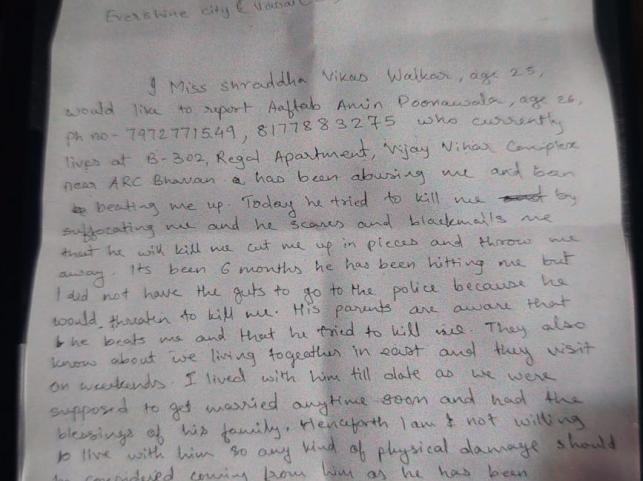 Evershine city, Vasai
I Miss Shraddha Vikas Walkar, age 25,
would like to report Aaftab Amin Poonawala, age 26,
ph no - 7972771549, 8177883275 who currently
lives at B-302, Regal Apartment, Vijay Vihar Complex
near ARC Bhavan has been abusing me and been
beating me up. Today he tried to kill me by
suffocating me and he scares and blackmails me
that he will kill me cut me up in pieces and throw me
away. Its been 6 months he has been hitting me but
I did not have the guts to go to the police because he
would threaten to kill me. His parents are aware that
he beats me and that he tried to kill me. They also
know about we living togeather in east and they visit
on weekends. I lived with him till date as we were
supposed to get married anytime soon and had the
blessings of his family. Henceforth I am not willing
to live with him so any kind of physical damage should
be considered coming from him as he has been